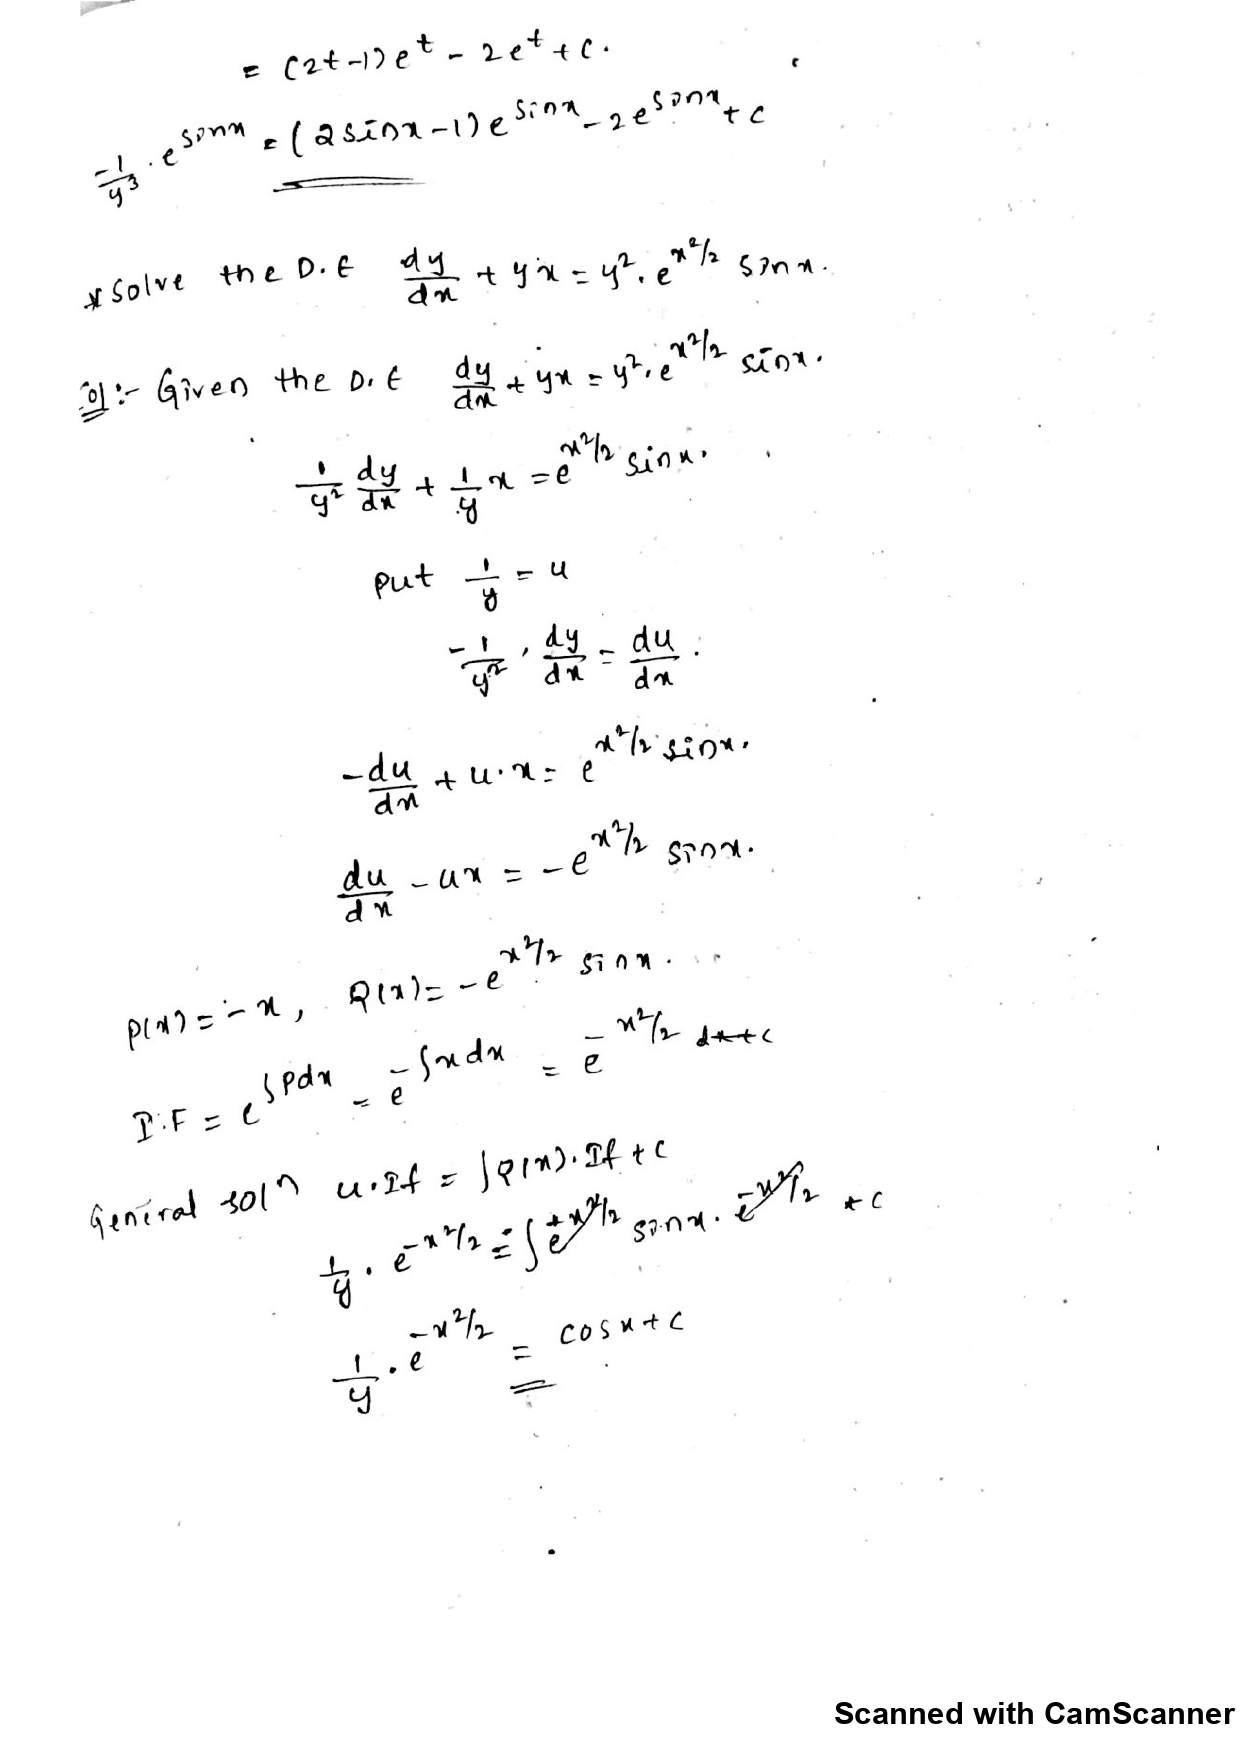 = (2t-1)e^t - 2e^t + c.
-1/y^3 . e^sinx = (2sinx-1)e^sinx - 2e^sinx + c
* Solve the D.E dy/dx + yx = y^2. e^x^2/2 sinx.
Sol:- Given the D.E dy/dx + yx = y^2. e^x^2/2 sinx.
1/y^2 dy/dx + 1/y x = e^x^2/2 sinx.
put 1/y = u
-1/y^2 . dy/dx = du/dx.
-du/dx + u.x = e^x^2/2 sinx.
du/dx - ux = -e^x^2/2 sinx.
P(x) = -x, Q(x) = -e^x^2/2 sinx.
I.F = e^∫Pdx = e^-∫xdx = e^-x^2/2 dx+c
General sol^n u.If = ∫Q(x).If + c
1/y . e^-x^2/2 = -∫e^+x^2/2 sinx. e^-x^2/2 + c
1/y . e^-x^2/2 = cosx + c
Scanned with CamScanner